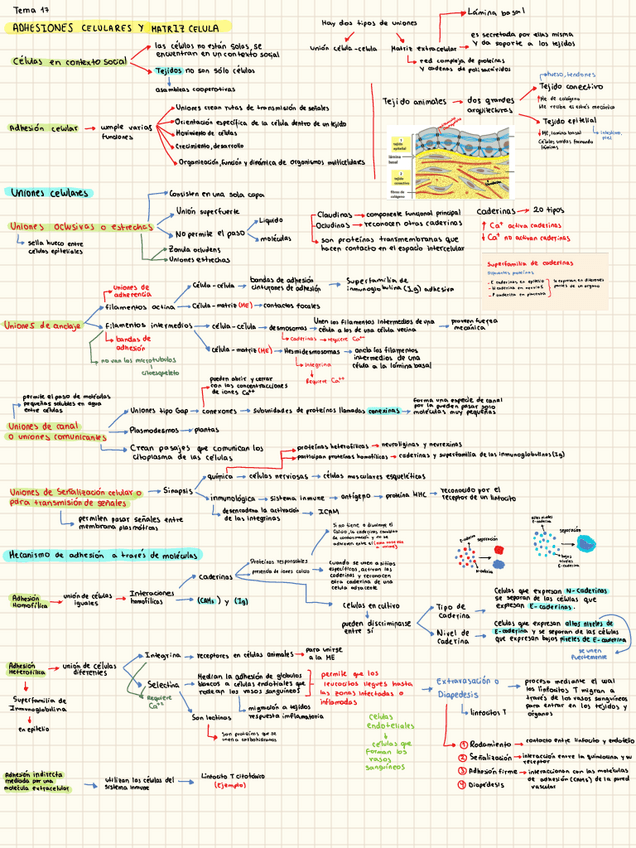 Tema 17
ADHESIONES CELULARES Y MATRIZ CELULA
Células en contexto social
las células no están solas, se
encuentran en un contexto social
Tejidos no son sólo células
asambleas cooperativas
Hay dos tipos de uniones
unión célula-celula
Matriz extracelular
Lámina basal
es secretada por ellas misma
y da soporte a los tejidos
red compleja de proteínas
y cadenas de polisacáridos
Adhesión celular
cumple varias
funciones
Uniones crean rutas de transmisión de señales
Orientación específica de la célula dentro de un tejido
Movimiento de células
Crecimiento, desarrollo
Organización, función y dinámica de organismos multicelulares
Tejido animales
dos grandes
arquitecturas
Tejido conectivo
Tejido epitelial
Uniones celulares
Uniones oclusivas o estrechas
sella hueco entre
células epiteliales
Consisten en una sola capa
Unión superfuerte
No permite el paso
Líquido
moléculas
Zonula ocludens
Uniones estrechas
Claudinas
componente funcional principal
Ocludinas
reconocen otras caderinas
son proteínas transmembranas que
hacen contacto en el espacio intercelular
Caderinas
20 tipos
↑ Ca²⁺ activa caderinas
↓ Ca²⁺ no activan caderinas
Superfamilia de caderinas
Uniones de anclaje
uniones de
adherencia
filamentos actina
Célula-célula
bandas de adhesión
cinturones de adhesión
Superfamilia de
inmunoglobulina (Ig) adhesiva
Célula-matriz (ME)
contactos focales
filamentos intermedios
bandas de
adhesión
no van los microtúbulos
citoesqueleto
célula-célula
desmosomas
Unen los filamentos intermedios de una
célula a los de una célula vecina
proveen fuerza
mecánica
caderinas
requiere Ca²⁺
célula-matriz (ME)
Hemidesmosomas
ancla los filamentos
intermedios de una
célula a la lámina basal
integrina
Requiere Ca²⁺
Uniones de canal
o uniones comunicantes
permite el paso de moléculas
pequeñas solubles en agua
entre células
Uniones tipo Gap
conexones
pueden abrir y cerrar
con las concentraciones
de iones Ca²⁺
subunidades de proteínas llamadas conexinas
forma una especie de canal
moléculas muy pequeñas
Plasmodesmos
plantas
Crean pasajes que comunican los
citoplasma de las células
Uniones de Señalización celular o
para transmisión de señales
permiten pasar señales entre
membranas plasmáticas
Sinapsis
química
células nerviosas
células musculares esqueléticas
proteínas heterofílicas
neuroliginas y neurexinas
participan proteínas homofílicas
caderinas y superfamilia de las inmunoglobulinas (Ig)
inmunológica
sistema inmune
antígeno
proteína MHC
reconocido por el
receptor de un linfocito
desencadena la activación
de las integrinas
ICAM
Mecanismo de adhesión a través de moléculas
Adhesión
Homofílica
unión de células
iguales
Interacciones
homofílicas
caderinas
Proteínas responsables
(CAMs) y (Ig)
Cuando se une a sitios
específicos, activan las
caderinas y reconocen
otra caderina de una
célula adyacente
células en cultivo
pueden discriminarse
entre sí
Tipo de
caderina
Células que expresan N-caderinas
se separan de las células que
expresan E-caderinas.
Nivel de
caderina
Células que expresan altos niveles de
E-caderina y se separan de las células
que expresan bajos niveles de E-caderina
se unen
fuertemente
separación
separación
Adhesión
Heterofílica
unión de células
diferentes
Superfamilia de
Inmunoglobilina
en epitelio
Integrina
receptores en células animales
para unirse
a la ME
Requiere
Ca²⁺
Selectina
Median la adhesión de glóbulos
blancos a células endoteliales que
rodean los vasos sanguíneos
permite que los
leucocitos lleguen hasta
las zonas infectadas o
inflamadas
migración a tejidos
respuesta inflamatoria
Son lectinas
son proteínas que se
unen a carbohidratos
células
endoteliales
células que
forman los
vasos
sanguíneos
Extravasación o
Diapedesis
proceso mediante el cual
los linfocitos T migran a
través de los vasos sanguíneos
para entrar en los tejidos y
órganos
linfocitos T
① Rodamiento
contacto entre linfocito y endotelio
② Señalización
interacción entre la quimiocina y su
receptor
③ Adhesión firme
interaccionan con las moléculas
de adhesión (CAMs) de la pared
vascular
④ Diapédesis
Adhesión indirecta
mediada por una
molécula extracelular
utilizan las células del
sistema inmune
Linfocito T citotóxico
(Ejemplo)